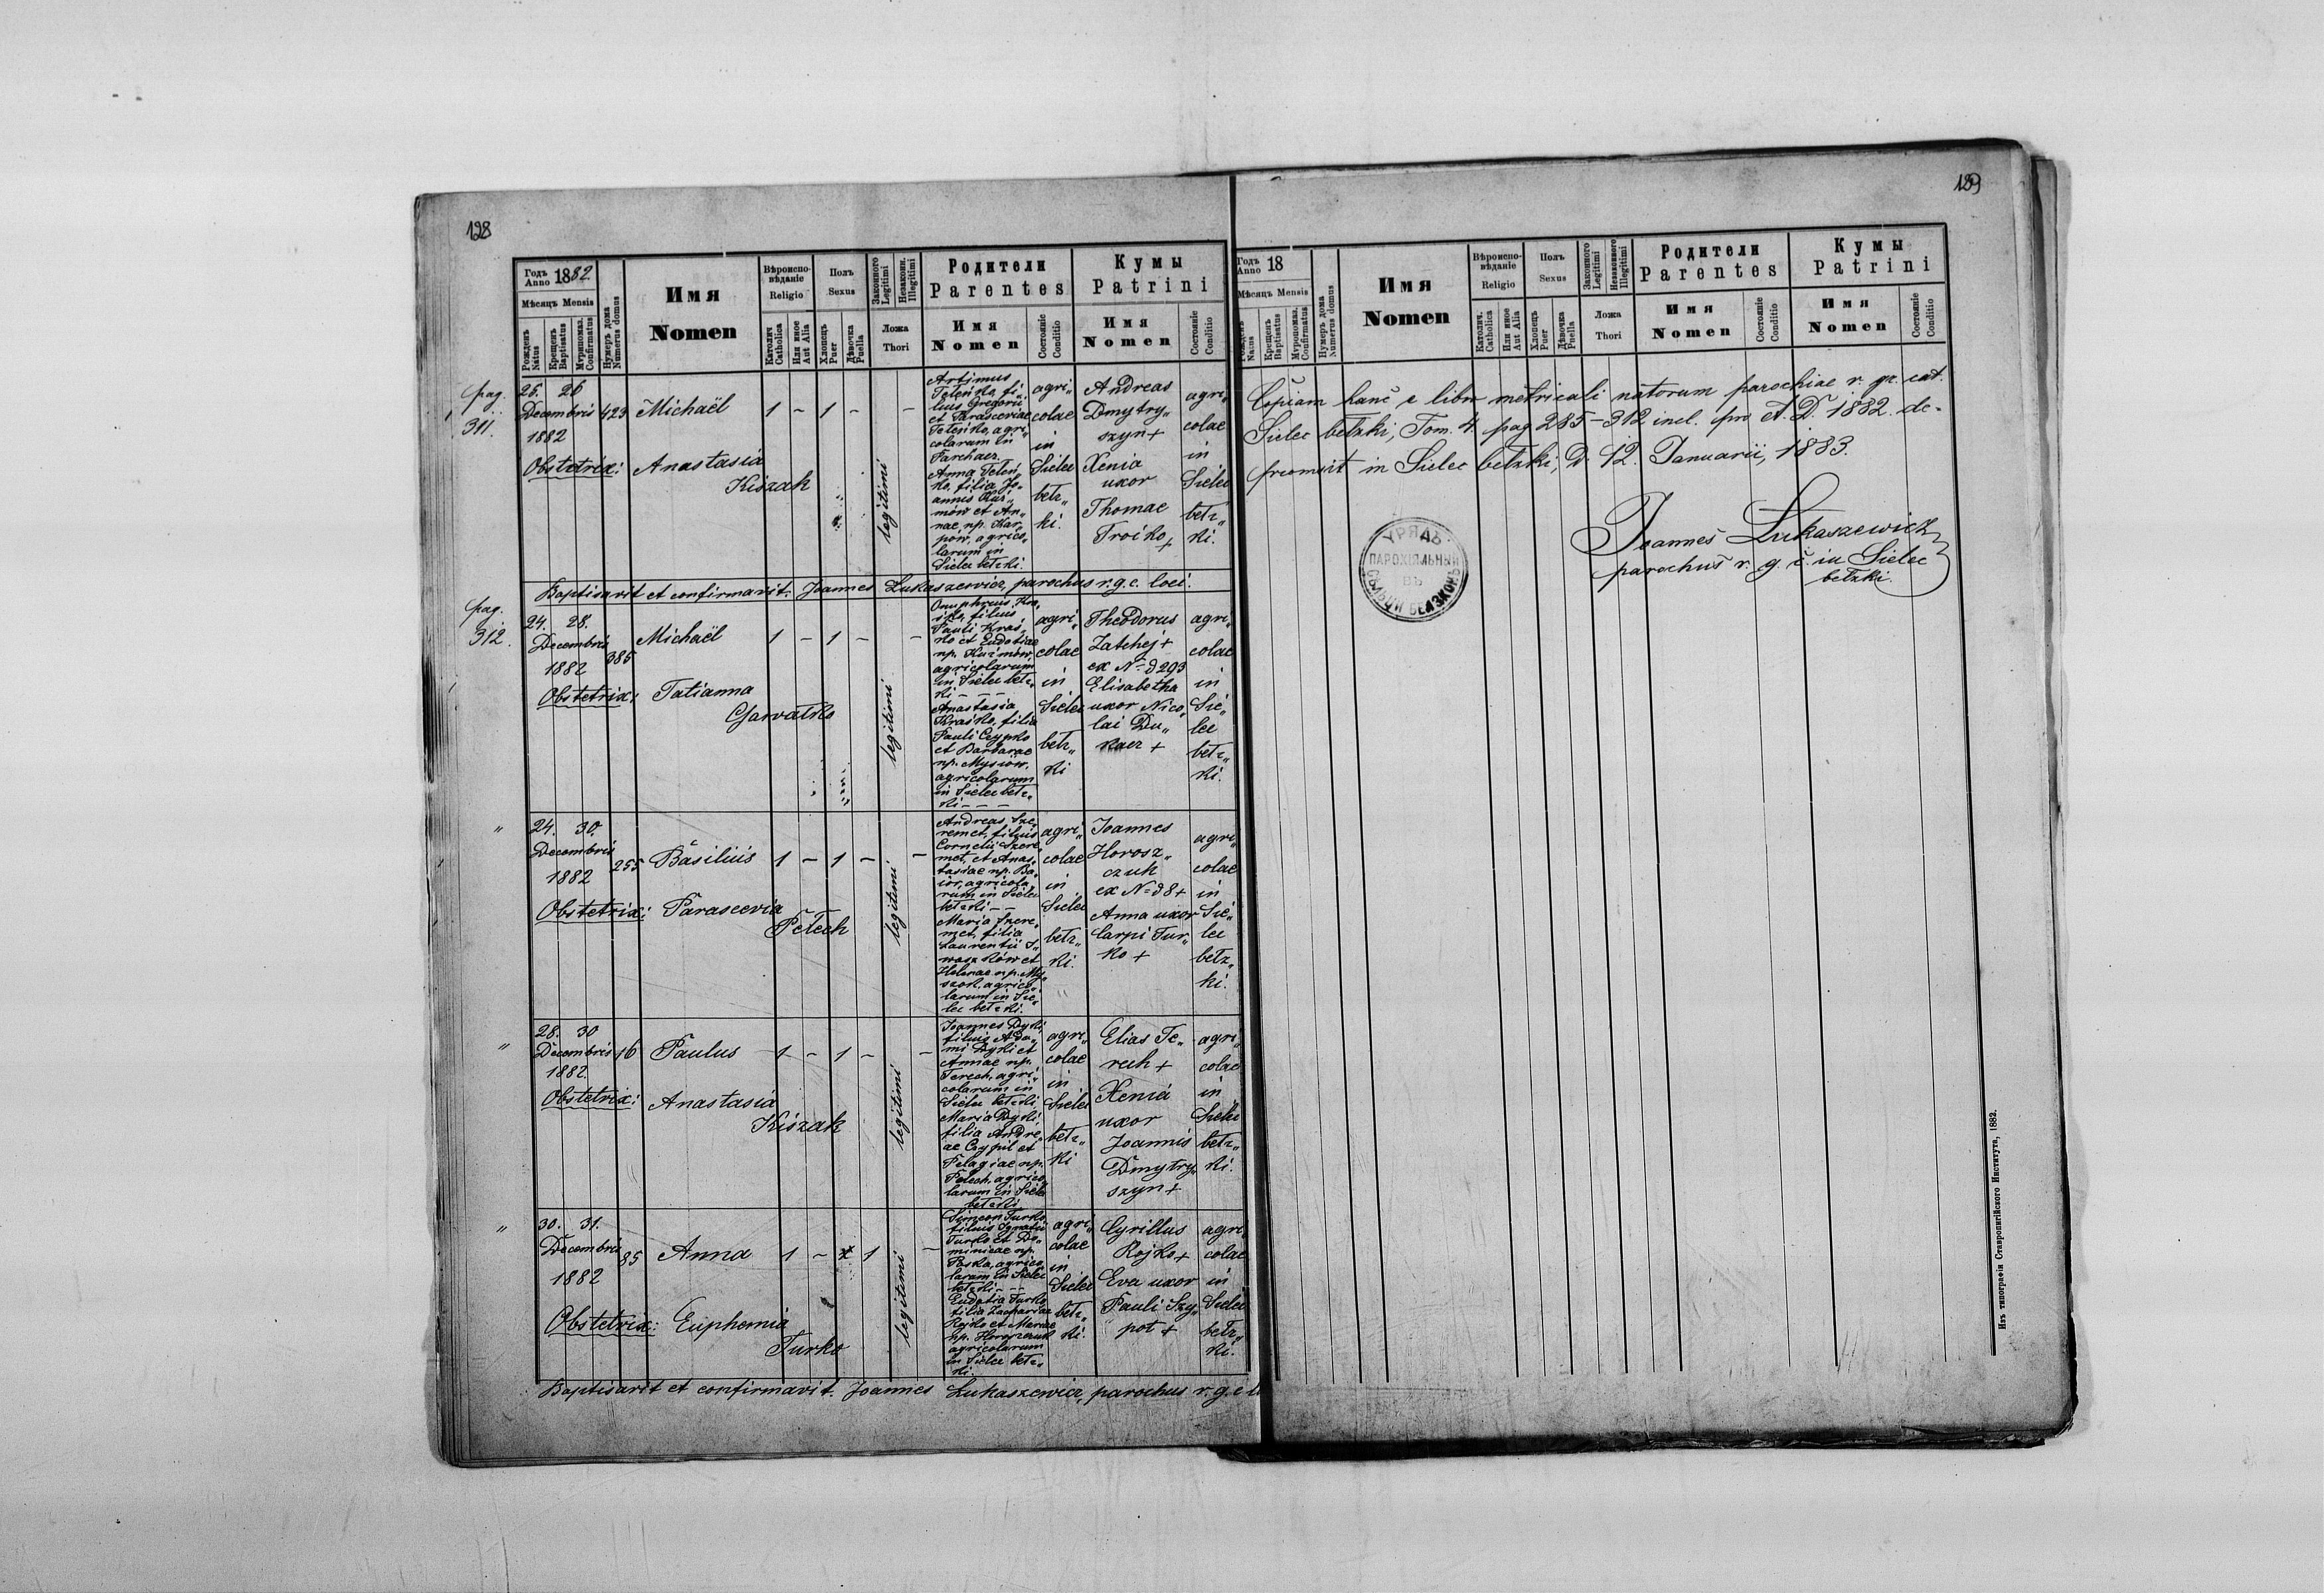 128
Годъ Anno 1882
Мѣсяцъ Mensis
Рожденъ Natus
Крещенъ Baptisatus
Муропомаз. Confirmatus
Нумеръ дома Numerus domus
Имя
Nomen
Вѣроиспо-
вѣданіе
Religio
Католич. Catholica
Или иное Aut Alia
Полъ
Sexus
Хлопецъ Puer
Дѣвочка Puella
Законного Legitimi
Незаконн. Illegitimi
Ложа
Thori
Родители
Parentes
Имя
Nomen
Состояніе Conditio
Кумы
Patrini
Имя
Nomen
Состояніе Conditio
pag. 311.
25. 26
Decembris
1882
423
Michaël
1 - 1 - -
legitimi
Obstetrix: Anastasia
Kiszak
Artimus
Teleńko, fi„
lius Gregorii
et Parasceviae
Teleńko, agri„
colarum in
Parchacz.
Anna Teleń„
ko, filia Jo„
annis Kuź„
mów et An„
nae, np. Kar„
pów, agrico„
larum in
Sielec bełzki.
agri„
colae
in
Sielec
bełz„
ki.
Andreas
Dmytry„
szyn +
Xenia
uxor
Thomae
Trojko +
agri„
colae
in
Sielec
bełz„
ki.
Baptisavit et confirmavit: Joannes Łukaszewicz, parochus r. g. c. loci.
pag. 312.
24. 28.
Decembris
1882
385
Michaël
1 - 1 - -
legitimi
Obstetrix: Tatianna
Onuphrius Kra„
śko, filius
Pauli Kraś„
ko et Eudotiae
np. Kuźmów,
agricolarum
in Sielec bełz„
ki - - -
Anastasia
Kraśko, filia
Pauli Czypko
et Barbarae
np. Mysiów,
agricolarum
in Sielec bełz„
ki - - -
agri„
colae
in
Sielec
bełz„
ki
Theodorus
Zatchej +
ex No d 293
Elisabetha
uxor Nico„
lai Du„
kacz +
agri„
colae
in
Sie„
lec
bełz„
ki.
„
24. 30.
Decembris
1882
255
Basilius
1 - 1 - -
legitimi
Obstetrix: Parascevia
Pełech
Andreas Sze„
remet, filius
Cornelii Szere„
met, et Anas„
tasiae np. Ba„
ior, agricola„
rum in Sielec
bełzki - -
Maria Szere„
met, filia
Laurentii I„
waszków et
Helenae np. My„
szok, agrico„
larum in Sie„
lec bełzki.
agri„
colae
in
Sielec
bełz„
ki.
Joannes
Horosz„
czuk
ex No d 8 +
Anna uxor
Carpi Tur„
ko +
agri„
colae
in
Sie„
lec
bełz„
ki.
„
28. 30
Decembris
1882.
16
Paulus
1 - 1 - -
legitimi
Obstetrix: Anastasia
Kiszak
Joannes Dyki,
filius Ada„
mi Dyki et
Annae np.
Terech, agri„
colarum in
Sielec bełzki
Maria Dyki,
filia Andre„
ae Czypil et
Pelagiae np.
Pełech, agrico„
larum in Sielec
bełzki
agri„
colae
in
Sielec
bełz„
ki
Elias Te„
rech +
Xenia
uxor
Joannis
Dmytry„
szyn +
agri„
colae
in
Sielec
bełz„
ki.
„
30. 31.
Decembris
1882
85
Anna
1 - 1 -
legitimi
Obstetrix: Euphemia
Turko
Simeon Turko,
filius Ignatii
Turko et Do„
minicae np.
Poska, agrico„
larum in Sielec
bełzki - -
Eudotia Turko,
filia Zachariae
Rojko et Mariae
np. Horoszczuk
agricolarum
in Sielec bełz„
ki.
agri„
colae
in
Sielec
bełz„
ki.
Cyrillus
Rojko +
Eva uxor
Pauli Szy„
pot +
agri„
colae
in
Sielec
bełz„
ki.
Baptisavit et confirmavit. Joannes Łukaszewicz, parochus r. g. c.
Годъ Anno 18
Мѣсяцъ Mensis
Рожденъ Natus
Крещенъ Baptisatus
Муропомаз. Confirmatus
Нумеръ дома Numerus domus
Имя
Nomen
Вѣроиспо-
вѣданіе
Religio
Католич. Catholica
Или иное Aut Alia
Полъ
Sexus
Хлопецъ Puer
Дѣвочка Puella
Законного Legitimi
Незаконного Illegitimi
Ложа
Thori
Родители
Parentes
Имя
Nomen
Состояніе Conditio
Кумы
Patrini
Имя
Nomen
Состояніе Conditio
Copiam hanc e libro metricali natorum parochiae r. gr. cat.
Sielec bełzki, Tom. 4. pag 285-312 incl. pro A. D. 1882. de-
prompsit in Sielec bełzki, D. 12. Januarii, 1883.
Joannes Łukaszewicz
parochus r. g. c. in Sielec
bełzki.
УРЯДЪ
ПАРОХІЯЛЬНЫЙ
ВЪ
Изъ типографіи Ставропигійского Института, 1882.